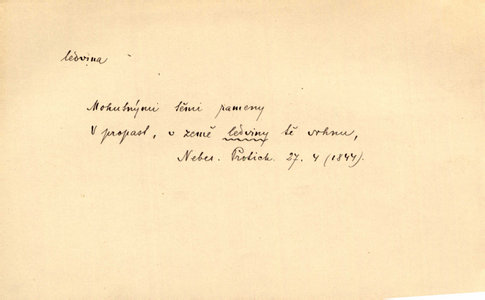 ledvina
Mohutnými těmi rameny
V propast, v země ledviny tě vrhnu,
Neber. Protich. 27. 4 (1844).